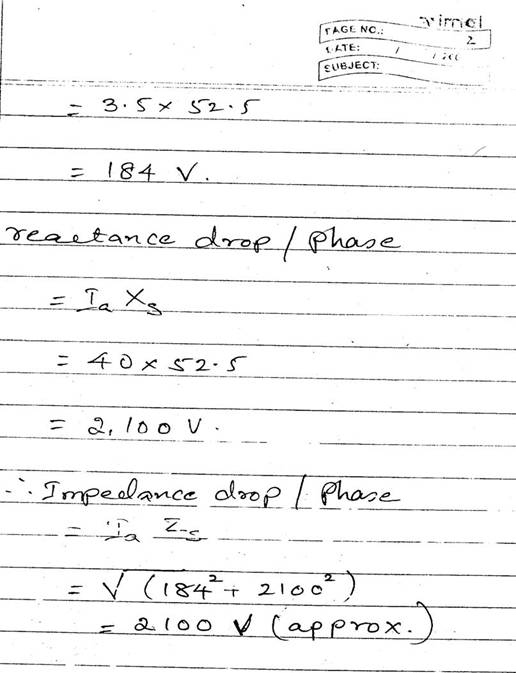 vimal
PAGE NO.:
2
DATE: / /200
SUBJECT:
= 3.5 x 52.5
= 184 V.
reactance drop / phase
= Ia Xs
= 40 x 52.5
= 2,100 V.
∴ Impedance drop / Phase
= Ia Zs
= √(184² + 2100²)
= 2100 V (approx.)